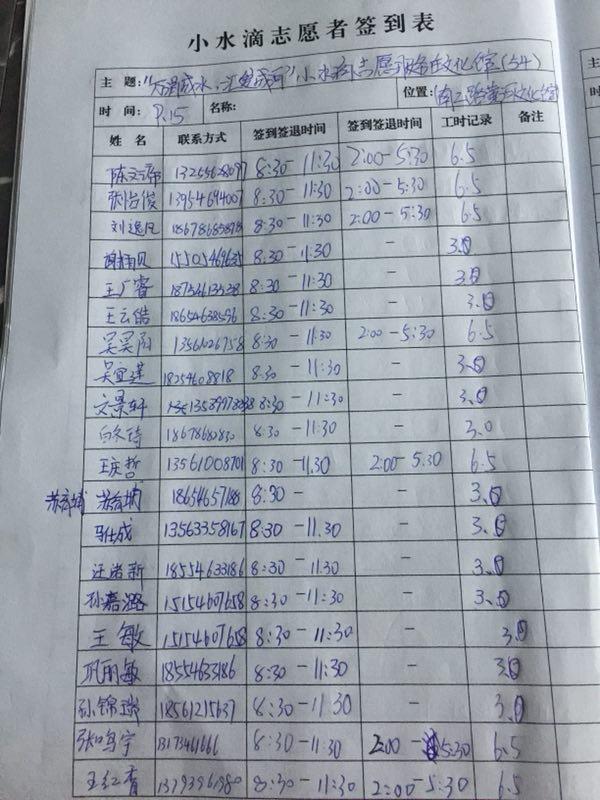 小水滴志愿者签到表
主 题: 小水滴志愿服务在文化馆(54)
位置: 文化馆
时 间: 8.15 名称:
姓 名 联系方式 签到签退时间 签到签退时间 工时记录 备注
8:30-11:30 2:00-5:30 6.5
张怡俊 13954694007 8:30-11:30 2:00-5:30 6.5
刘逸凡 8:30-11:30 2:00-5:30 6.5
8:30-11:30 - 3.0
王广睿 8:30-11:30 - 3.0
王云皓 18654638596 8:30-11:30 - 3.0
吴昊雨 13561026758 8:30-11:30 2:00-5:30 6.5
吴宜达 18254608818 8:30-11:30 - 3.0
文景轩 8:30-11:30 - 3.0
18678680830 8:30-11:30 - 3.0
王庆哲 13561008701 8:30-11.30 2:00-5.30 6.5
18654657188 8:30- - 3.0
马仕成 13563358167 8:30-11.30 - 3.0
汪诺新 18554633186 8:30-11.30 - 3.0
孙嘉潞 15154607658 8:30-11:30 - 3.0
王敏 15154607658 8:30-11:30 - 3.0
巩丽敏 18554633186 8:30-11:30 - 3.0
孙锦瑞 18561215637 8:30-11:30 - 3.0
张鸣宇 8:30-11:30 2:00-5:30 6.5
王红香 13793961980 8:30-11:30 2:00-5:30 6.5